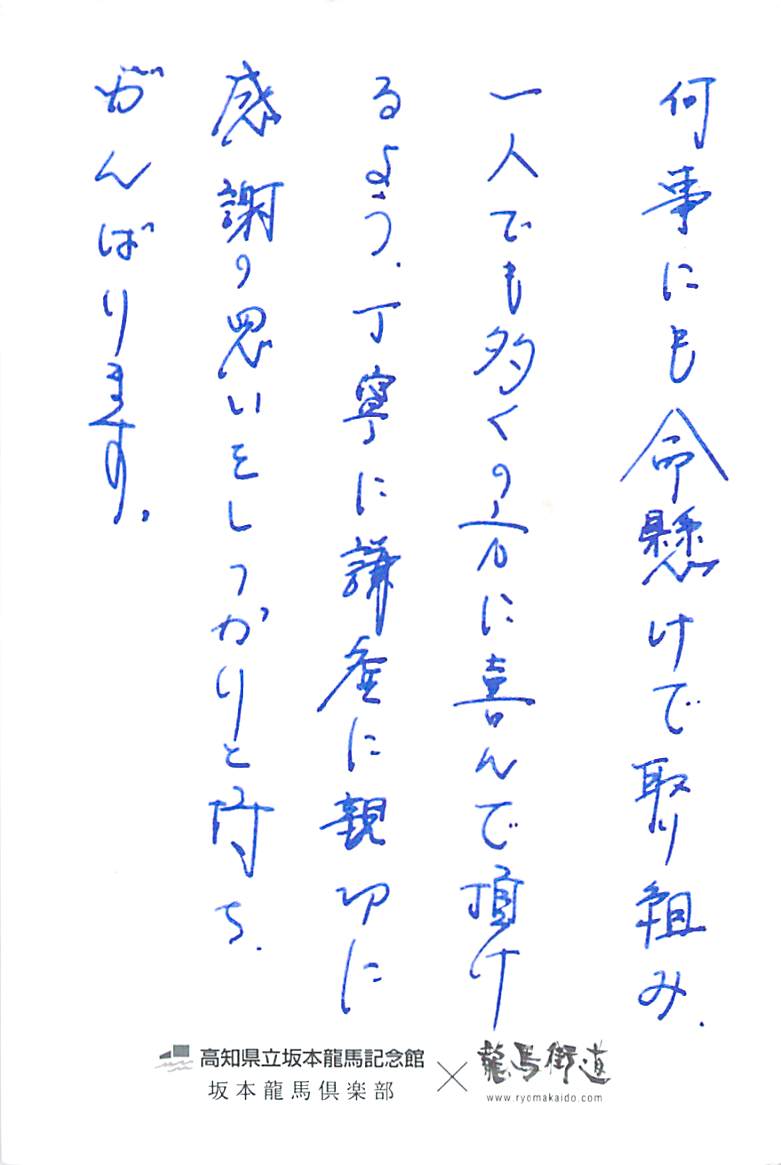 何事にも命懸けで取り組み、
一人でも多くの方に喜んで頂け
るよう、丁寧に謙虚に親切に
感謝の思いをしっかりと持ち、
がんばります。
高知県立坂本龍馬記念館
坂本龍馬倶楽部
×
龍馬街道
www.ryomakaido.com